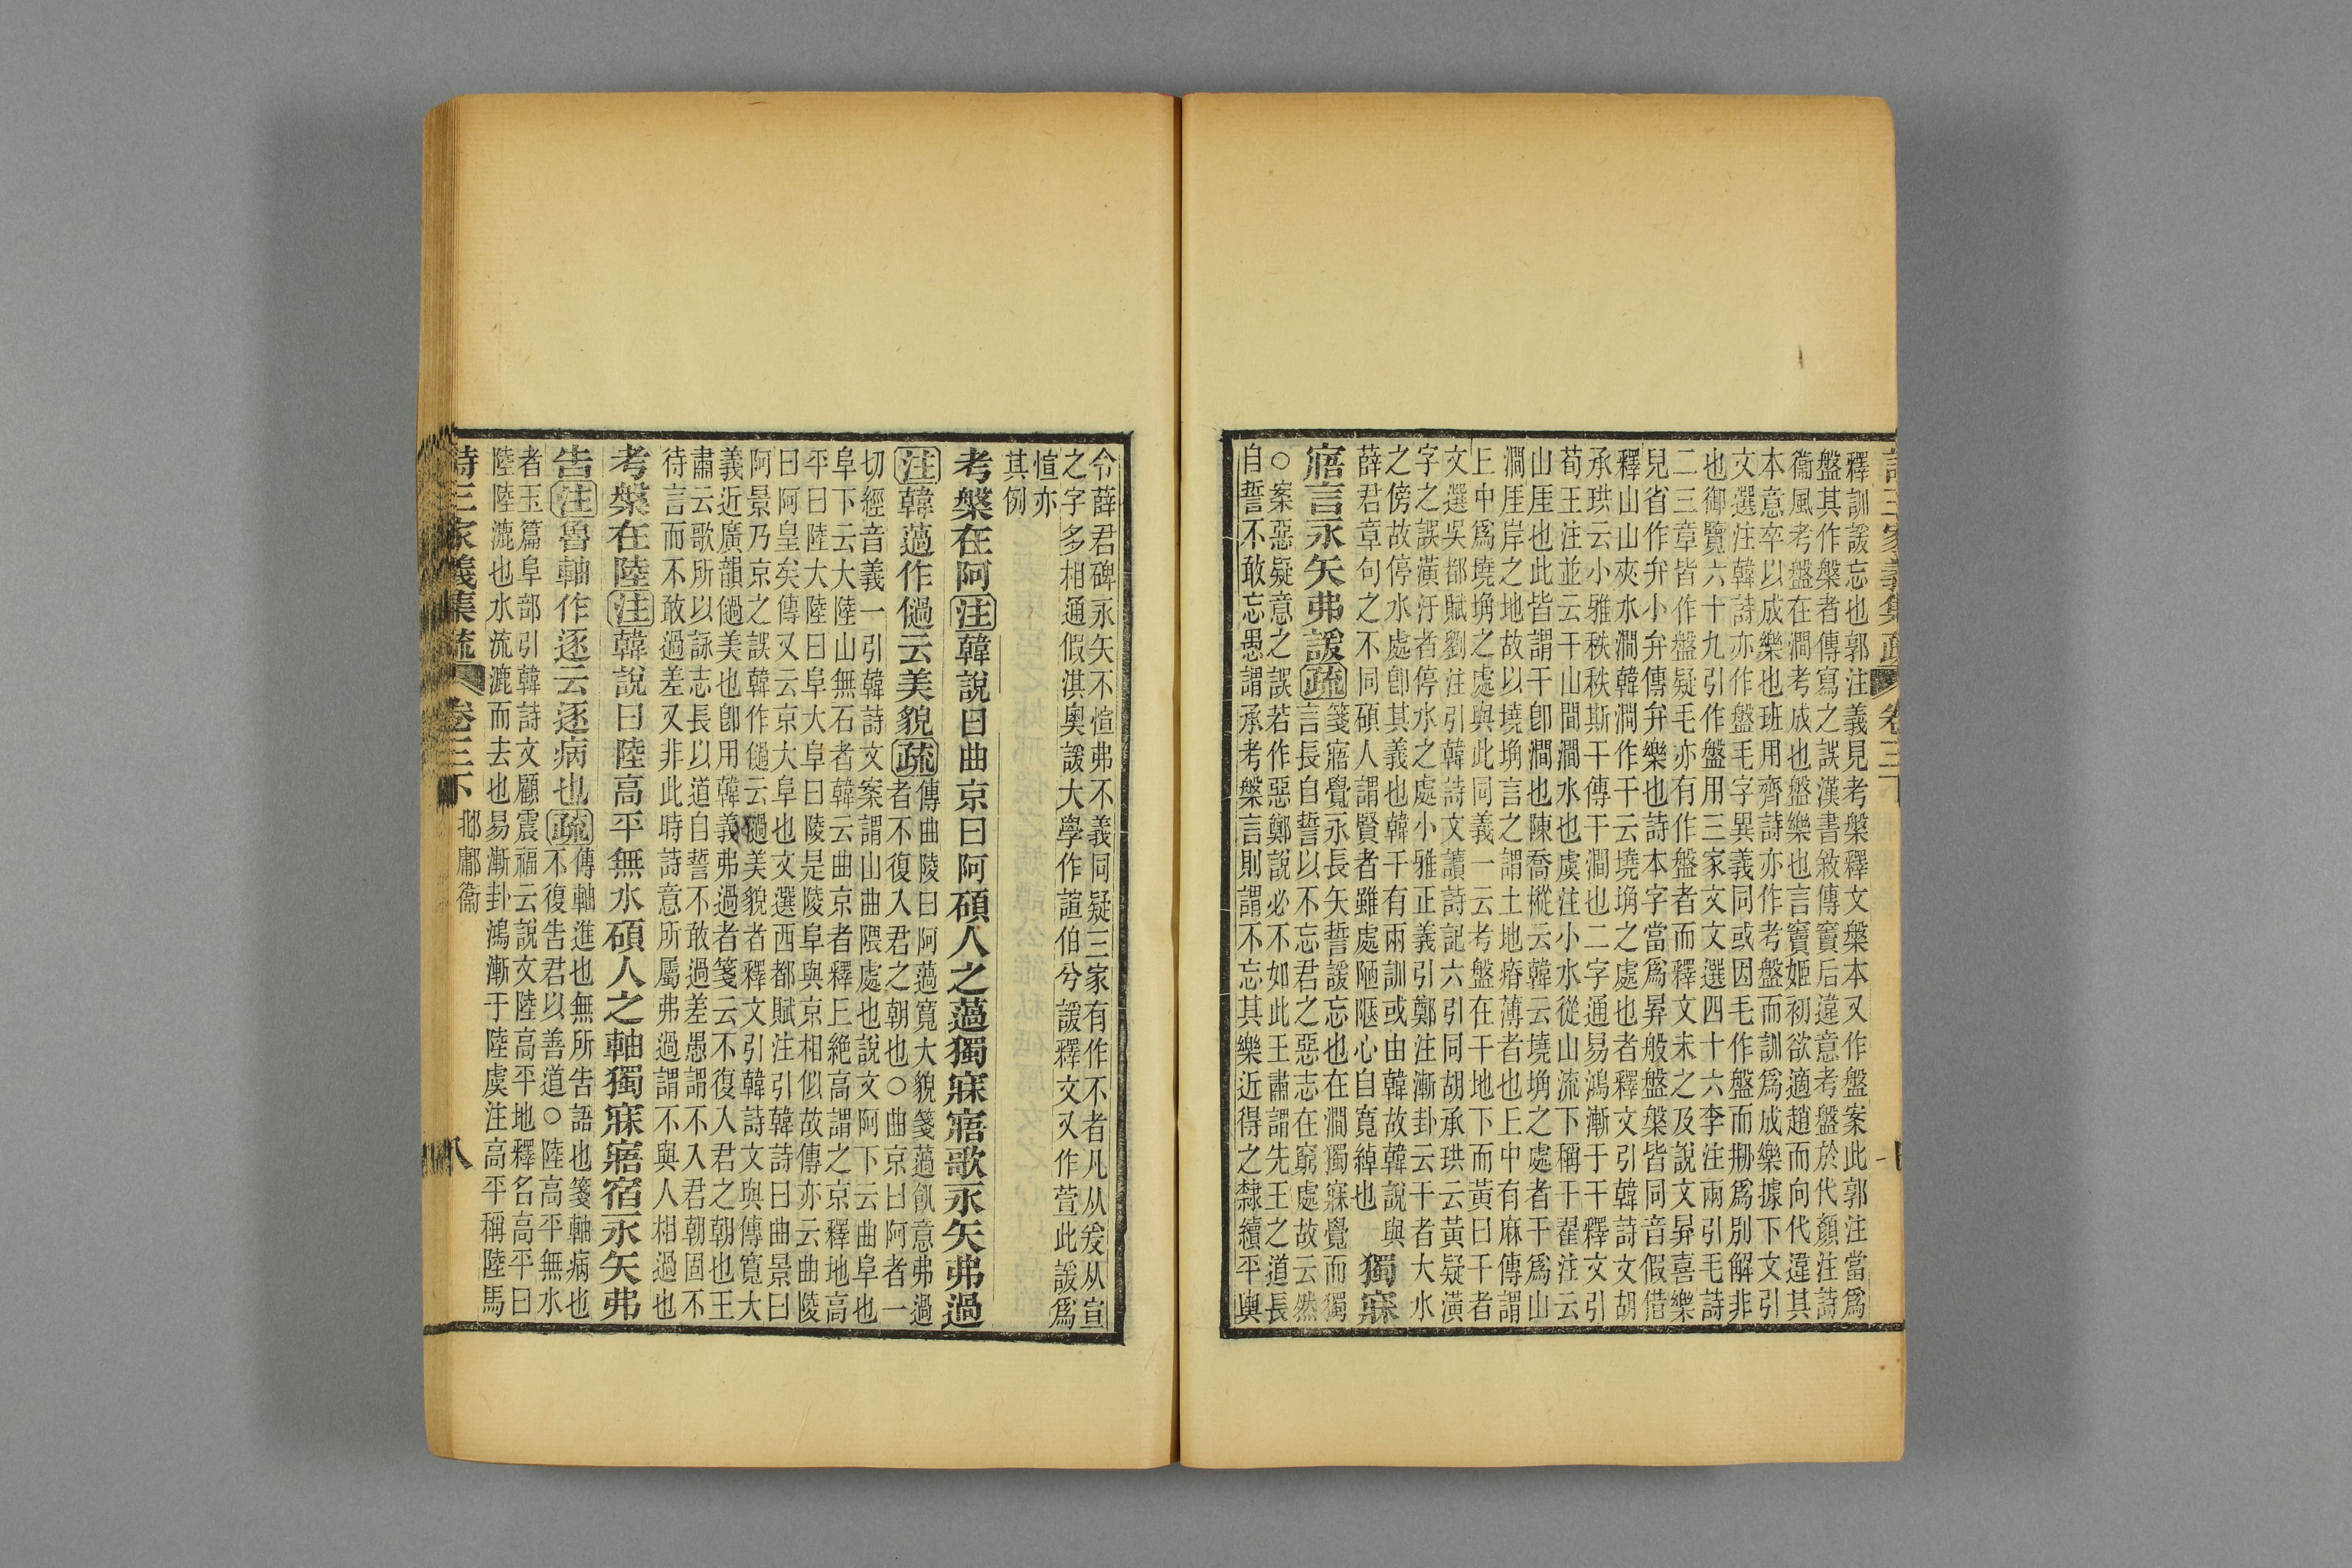 詩三家義集疏　卷三下
釋訓諼忘也郭注義見考槃釋文槃本又作盤案此郭注當爲
盤其作槃者傳寫之誤漢書敘傳竇后違意考盤於代顏注詩
衞風考盤在澗考成也盤樂也言竇姬初欲適趙而向代違其
本意卒以成樂也班用齊詩亦作考盤而訓爲成樂據下文引
文選注韓詩亦作盤毛字異義同或因毛作盤而刪爲別解非
也御覽六十九引作盤用三家文文選四十六李注兩引毛詩
二三章皆作盤疑毛亦有作盤者而釋文未之及說文昇喜樂
皃省作弁小弁傳弁樂也詩本字當爲昇般盤槃皆同音假借
釋山山夾水澗韓澗作干云墝埆之處也者釋文引韓詩文胡
承珙云小雅秩秩斯干傳干澗也二字通易鴻漸于干釋文引
荀王注並云干山間澗水也虞注小水從山流下稱干翟注云
山厓也此皆謂干卽澗也陳喬樅云韓云墝埆之處者干爲山
澗厓岸之地故以墝埆言之謂土地瘠薄者也上中有麻傳謂
上中爲墝埆之處與此同義一云考盤在干地下而黃曰干者
文選吳都賦劉注引韓詩文讀詩記六引同胡承珙云黃疑潢
字之誤潢汙者停水之處小雅正義引鄭注漸卦云干者大水
之傍故停水處卽其義也韓干有兩訓或由韓故韓說與
薛君章句之不同碩人謂賢者雖處陋隘心自寬綽也　獨寐
寤言永矢弗諼疏箋寤覺永長矢誓諼忘也在澗獨寐覺而獨
言長自誓以不忘君之惡志在窮處故云然
○案惡疑意之誤若作惡鄭說必不如此王肅謂先王之道長
自誓不敢忘愚謂承考槃言則謂不忘其樂近得之隸續平輿
令薛君碑永矢不愃弗不義同疑三家有作不者凡从爰从宣
之字多相通假淇奧諼大學作諠伯兮諼釋文又作萱此諼爲
愃亦
其例
考槃在阿注韓說曰曲京曰阿碩人之薖獨寐寤歌永矢弗過
注韓薖作㗻云美貌疏傳曲陵曰阿薖寬大貌箋薖飢意弗過
者不復入君之朝也○曲京曰阿者一
切經音義一引韓詩文案謂山曲隈處也說文阿下云曲阜也
阜下云大陸山無石者韓云曲京者釋上絶高謂之京釋地高
平曰陸大陸曰阜大阜曰陵是陵阜與京相似故傳亦云曲陵
曰阿皇矣傳又云京大阜也文選西都賦注引韓詩曰曲景曰
阿景乃京之誤韓作㗻云㗻美貌者釋文引韓詩文與傳寬大
義近廣韻㗻美也卽用韓義弗過者箋云不復入君之朝也王
肅云歌所以詠志長以道自誓不敢過差愚謂不入君朝固不
待言而不敢過差又非此時詩意所屬弗過謂不與人相過也
考槃在陸注韓說曰陸高平無水碩人之軸獨寐寤宿永矢弗
告注魯軸作逐云逐病也疏傳軸進也無所告語也箋軸病也
不復告君以善道○陸高平無水
者玉篇阜部引韓詩文顧震福云說文陸高平地釋名高平曰
陸陸漉也水流漉而去也易漸卦鴻漸于陸虞注高平稱陸馬
詩三家義集疏　卷三下　邶鄘衞　八